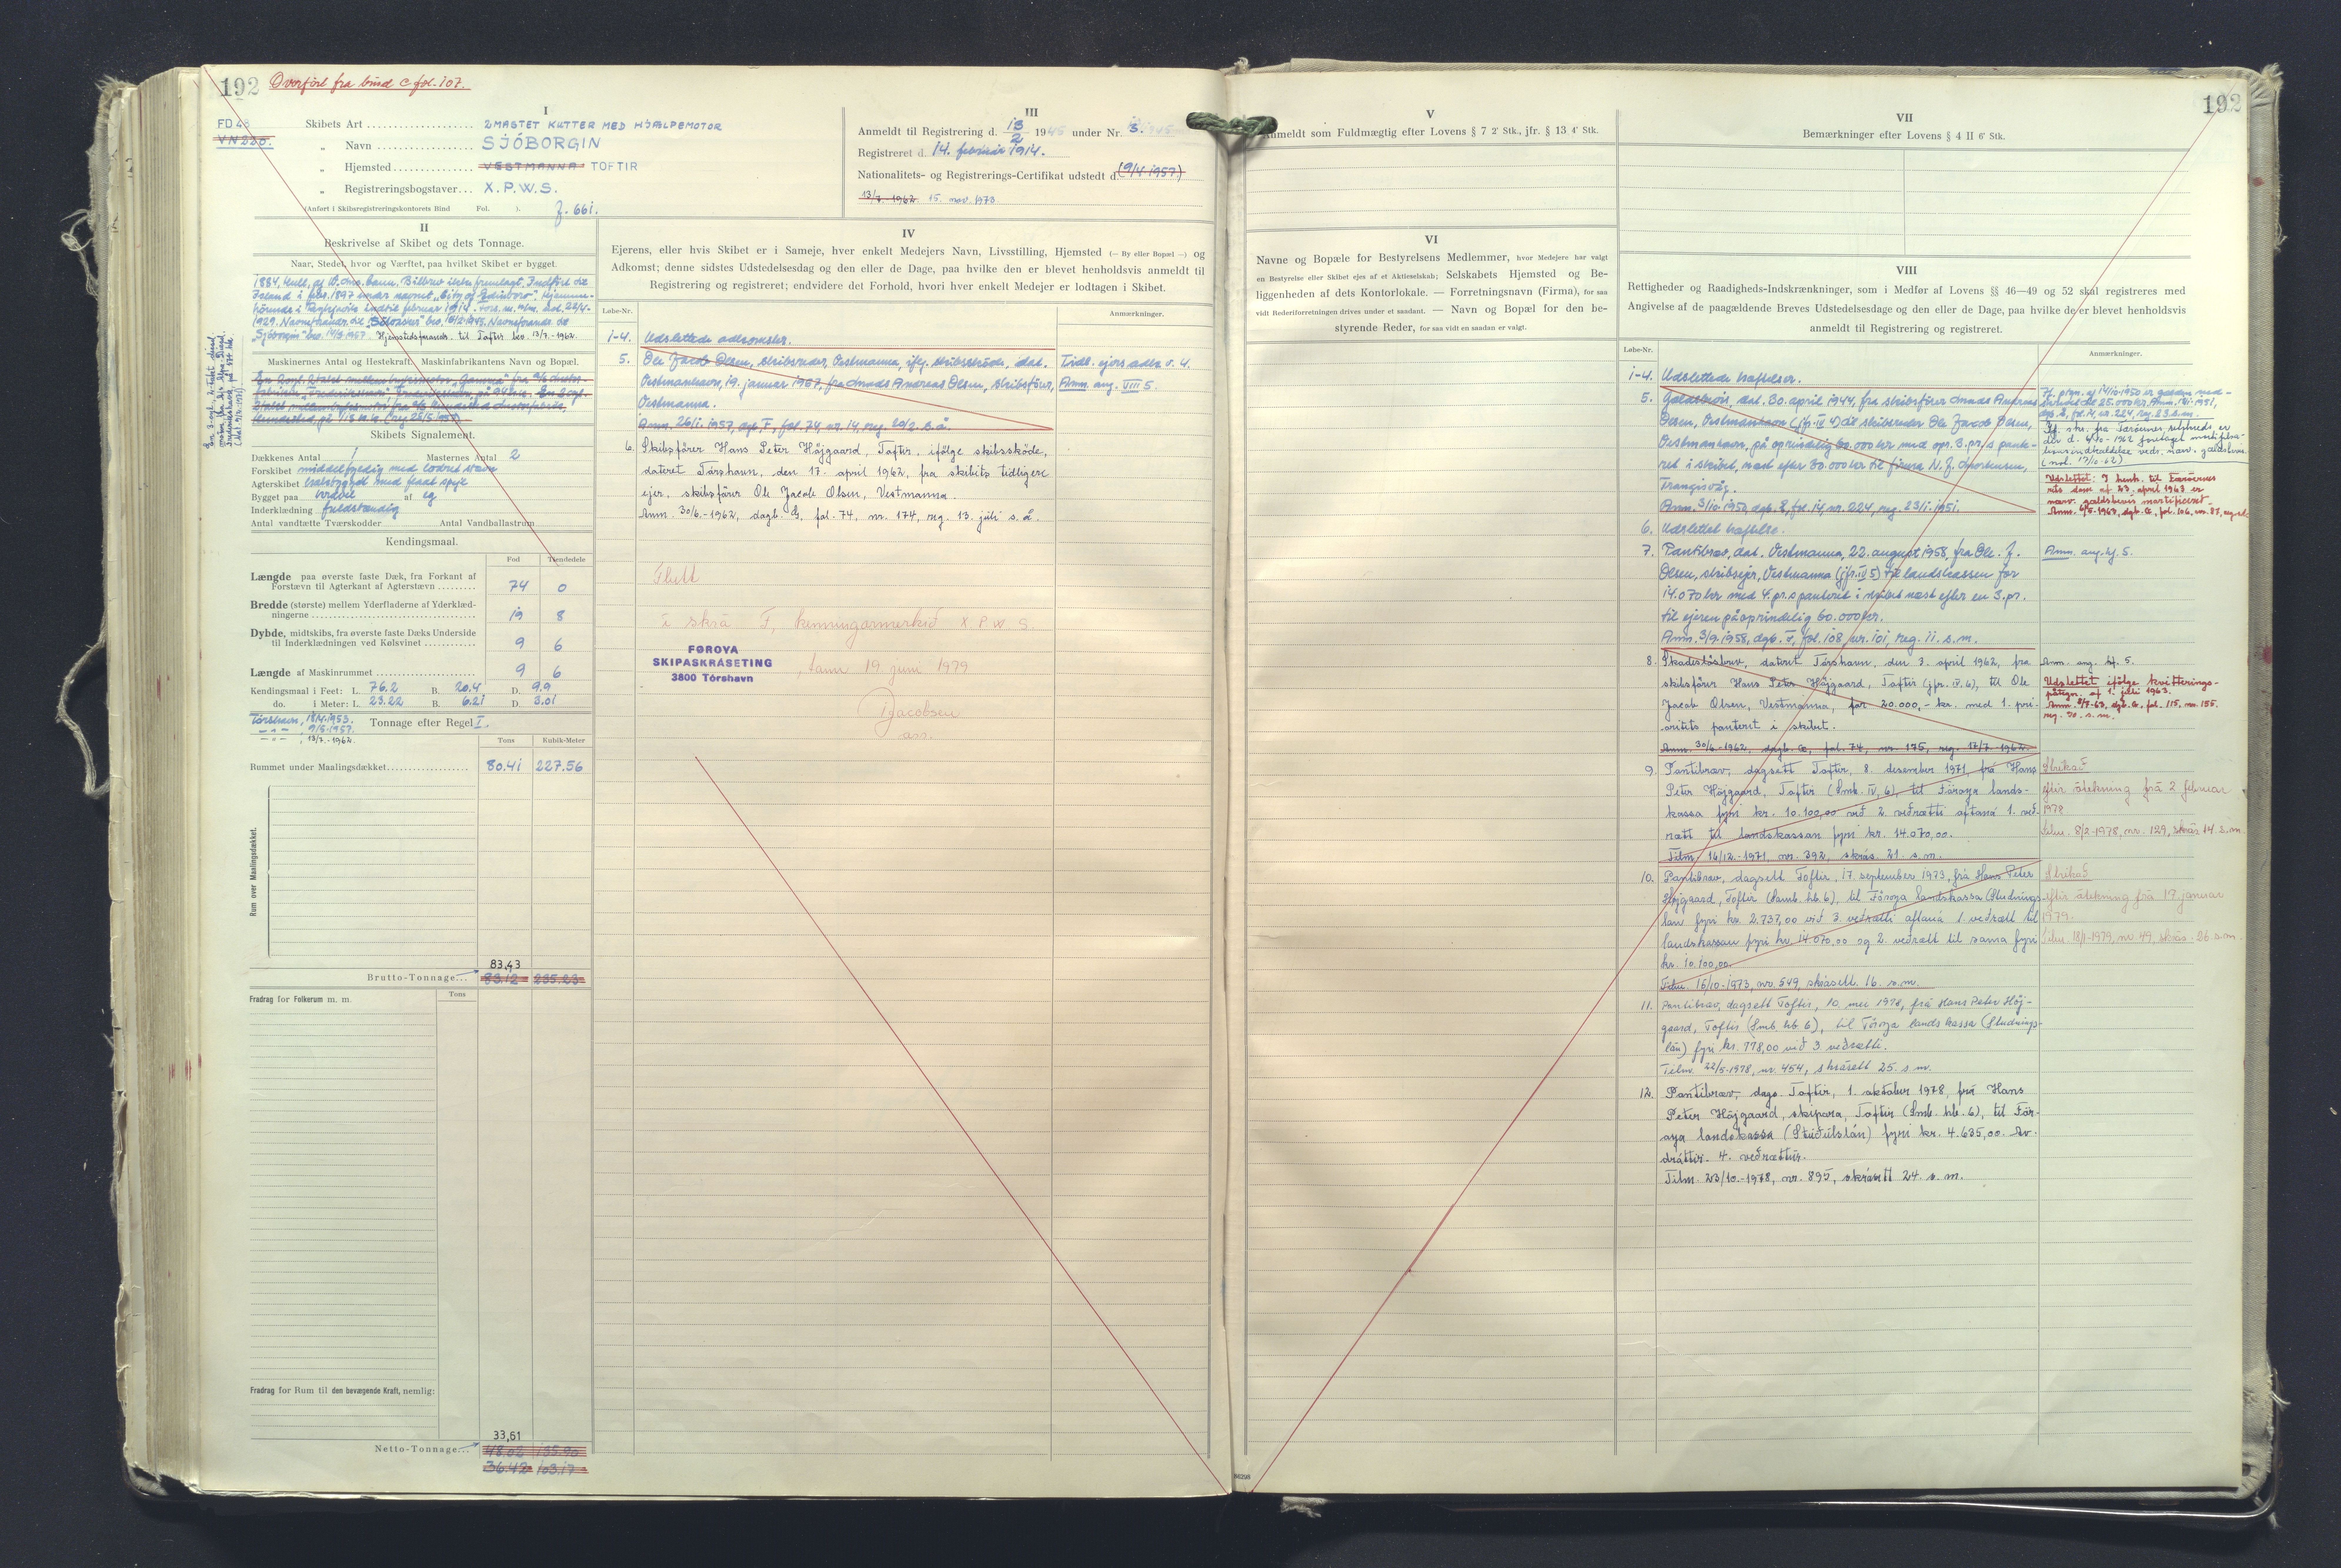 192 Overført fra bind C fol. 107.
FD 4
VN 220.
I
Skibets Art 2MASTET KUTTER MED HJÆLPEMOTOR
" Navn SJÓBORGIN
" Hjemsted VESTMANNA TOFTIR
" Registreringsbogstaver X.P.W.S.
(Anført i Skibsregistreringskontorets Bind Fol. ). J. 661.
III
Anmeldt til Registrering d. 13/2 1945 under Nr. 3.
Registreret d. 14. februar 1914.
Nationalitets- og Registrerings-Certifikat udstedt d. (9/4 1957)
13/7.-1962. 15. nov. 1973
II
Beskrivelse af Skibet og dets Tonnage.
Naar, Stedet, hvor og Værftet, paa hvilket Skibet er bygget.
1884, Hull, af
Island i 1897 under navnet "City of Edinboro".
"Sjóborgin" Hjemstedsforandr. til Toftir bev. 13/7.-1962.
Maskinernes Antal og Hestekraft. Maskinfabrikantens Navn og Bopæl.
Skibets Signalement.
Dækkenes Antal 1 Masternes Antal 2
Forskibet middelfyldig med lodret stævn
Agterskibet hækbygget med fladt spejl
Bygget paa kravel af eg
Inderklædning fuldstændig
Antal vandtætte Tværskodder Antal Vandballastrum
Kendingsmaal.
Fod Tiendedele
Længde paa øverste faste Dæk, fra Forkant af
Forstævn til Agterkant af Agterstævn 74 0
Bredde (største) mellem Yderfladerne af Yderklæd-
ningerne 19 8
Dybde, midtskibs, fra øverste faste Dæks Underside
til Inderklædningen ved Kølsvinet 9 6
Længde af Maskinrummet 9 6
Kendingsmaal i Feet: L. 76.2 B. 20.4 D. 9.9
do. i Meter: L. 23.22 B. 6.21 D. 3.01
Tórshavn, 18/4.1953.
9/5.1957.
13/7.-1962.
Tonnage efter Regel I.
Tons Kubik-Meter
Rummet under Maalingsdækket 80.41 227.56
Rum over Maalingsdækket.
83,43
Brutto-Tonnage 83.12 235.23
Fradrag for Folkerum m. m. Tons
Fradrag for Rum til den bevægende Kraft, nemlig:
33,61
Netto-Tonnage 48.02 135.90
36.42 103.17
IV
Ejerens, eller hvis Skibet er i Sameje, hver enkelt Medejers Navn, Livsstilling, Hjemsted (— By eller Bopæl —) og
Adkomst; denne sidstes Udstedelsesdag og den eller de Dage, paa hvilke den er blevet henholdsvis anmeldt til
Registrering og registreret; endvidere det Forhold, hvori hver enkelt Medejer er lodtagen i Skibet.
Løbe-Nr. Anmærkninger.
1-4. Udslettede adkomster.
5. Ole Jacob Olsen, skibsreder, Vestmanna, iflg. skibsskøde, dat.
Vestmanhavn, 19. januar 1957, fra Andreas Olsen, skibsfører,
Vestmanna.
Anm. 26/1.1957, dgb. F, fol. 74, nr. 14, reg. 20/2. s.å.
Tidl. ejers adk. v. 4.
Anm. ang. VIII 5.
6. Skibsfører Hans Peter Højgaard, Toftir, ifølge skibsskøde,
dateret Tórshavn, den 17. april 1962, fra skibets tidligere
ejer, skibsfører Ole Jacob Olsen, Vestmanna.
Anm. 30/6.-1962, dagb. G, fol. 74, nr. 174, reg. 13. juli s. å.
Flutt
í skrá F, kenningarmerkið X.P.W.S.
FØROYA
SKIPASKRÁSETING
3800 Tórshavn
, tann 19. juni 1979
Jacobsen
ass.
192
V
Anmeldt som Fuldmægtig efter Lovens § 7 2' Stk., jfr. § 13 4' Stk.
VI
Navne og Bopæle for Bestyrelsens Medlemmer, hvor Medejere har valgt
en Bestyrelse eller Skibet ejes af et Aktieselskab; Selskabets Hjemsted og Be-
liggenheden af dets Kontorlokale. — Forretningsnavn (Firma), for saa
vidt Rederiforretningen drives under et saadant. — Navn og Bopæl for den be-
styrende Reder, for saa vidt en saadan er valgt.
VII
Bemærkninger efter Lovens § 4 II 6' Stk.
VIII
Rettigheder og Raadigheds-Indskrænkninger, som i Medfør af Lovens §§ 46—49 og 52 skal registreres med
Angivelse af de paagældende Breves Udstedelsesdag og den eller de Dage, paa hvilke de er blevet henholdsvis
anmeldt til Registrering og registreret.
Løbe-Nr. Anmærkninger.
1-4. Udslettede hæftelser.
5. Gældsbevis, dat. 30. april 1944, fra skibsfører Andreas
Olsen, Vestmanhavn (jfr. IV 4) til skibsreder Ole Jacob Olsen,
Vestmanhavn, på oprindelig 60.000 kr med opr. 3. pr.s pante-
ret i skibet, næst efter 30.000 kr til firma N. J. Mortensen,
Trangisvåg.
Anm. 3/10.1950, dgb. E, fol. 14, nr. 224, reg. 23/1.1951.
6. Udslettet hæftelse.
7. Pantebrev, dat. Vestmanna, 22. august 1958 fra Ole J.
Olsen, skibsejer, Vestmanna (jfr. IV 5) til landskassen for
14.070 kr med 4. pr.s panteret i skibet næst efter en 3. pr.
til ejeren på oprindelig 60.000 kr.
Anm. 3/9.1958, dgb. F, fol. 108, nr. 101, reg. 11. s.m.
Anm. ang. hf. 5.
8. Skadesløsbrev, dateret Tórshavn, den 3. april 1962, fra
skibsfører Hans Peter Højgaard, Toftir (jfr. IV. 6), til Ole
Jacob Olsen, Vestmanna, for 20.000,- kr. med 1. pri-
oritets panteret i skibet.
Anm. 30/6.-1962, dagb. G, fol. 74, nr. 175, reg. 17/7.-1962.
Anm. ang. hf. 5.
Udslettet ifølge kvitterings-
påtegn. af 1. juli 1963.
Anm. 2/7-63, dgb. G, fol. 115, nr. 155.
reg. s. m.
9. Pantibræv, dagsett Toftir, 8. desember 1971, frá Hans
Peter Højgaard, Toftir (Smb. IV, 6), til Føroya lands-
kassa fyri kr. 10.100,00 við 2. veðrætti aftaná 1. veð-
rætt til landskassan fyri kr. 14.070,00.
Tilm. 16/12.-1971, nr. 392, skrás. 21. s.m.
Strikað
eftir átekning frá 2. februar
1978
Tilm. 8/2-1978, nr. 129, skrás 14. s.m.
10. Pantibræv, dagsett Toftir, 17. september 1973, frá Hans Peter
Højgaard, Toftir (Samb. hb. 6), til Føroya Landskassa (Studnings-
lán fyri kr. 2.737,00 við 3. veðrætti aftaná 1. veðrætt til
landskassan fyri kr. 14.070,00 og 2. veðrætt til sama fyri
kr. 10.100,00.
Tilm. 15/10-1973, nr. 549, skrásett. 16. s.m.
Strikað
eftir átekning frá 17. januar
1979.
Tilm. 18/1-1979, nr. 49, skrás. 26 s.m.
11. Pantibræv, dagsett Toftir, 10. mei 1978, frá Hans Peter Høj-
gaard, Toftir (Smb. hb. 6), til Føroya landskassa (Studnings-
lán) fyri kr. 778,00 við 3. veðrætti.
Tilm. 22/5-1978, nr. 454, skrásett 25. s.m.
12. Pantibræv, dags. Toftir, 1. oktober 1978, frá Hans
Peter Højgaard, skipara, Toftir (Smb. hb. 6), til Før-
oya landskassa (Stuðulslán) fyri kr. 4.635,00. Av-
dráttir. 4. veðrættur.
Tilm. 23/10.-1978, nr. 895, skrásett 24. s.m.